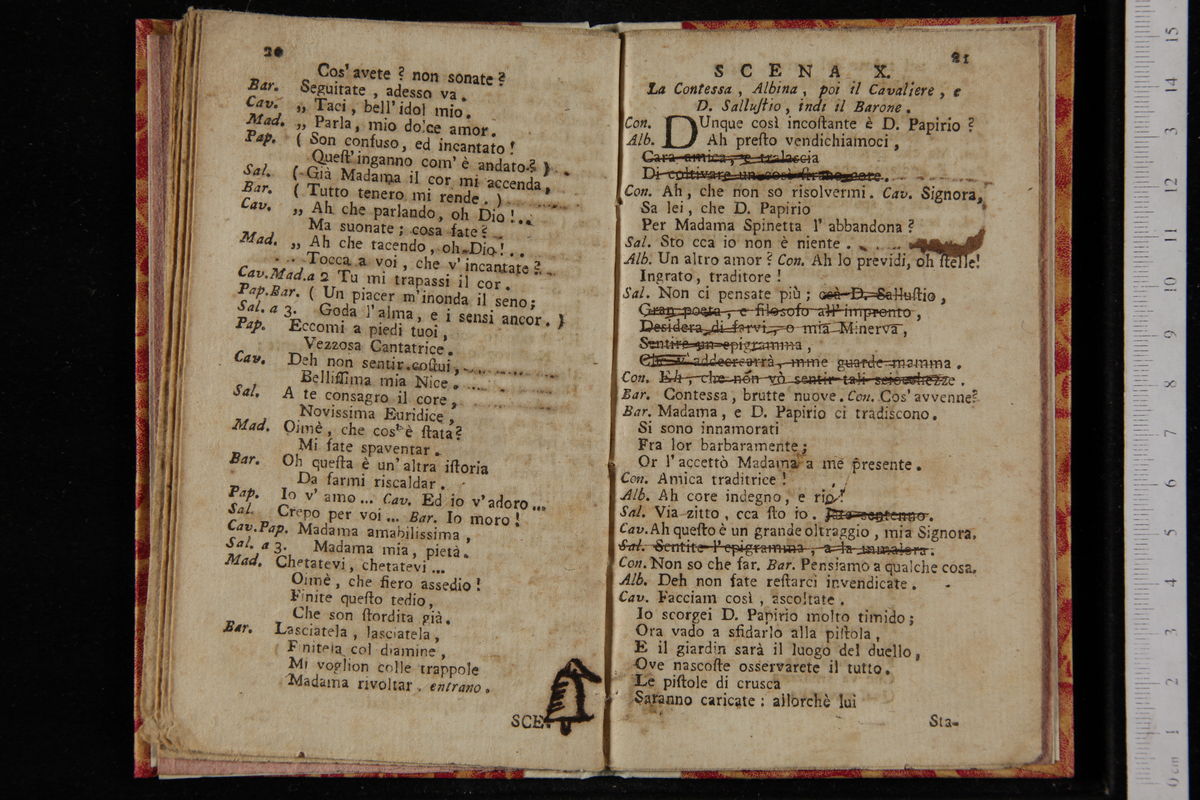 20
Cos' avete ? non sonate ?
Bar. Seguitate , adesso va .
Cav. „ Taci , bell' idol mio .
Mad. „ Parla , mio dolce amor .
Pap. ( Son confuso , ed incantato !
Queſt' inganno com' è andato ? ) .
Sal. ( Già Madama il cor mi accenda ,
Bar. ( Tutto tenero mi rende . )
Cav. „ Ah che parlando , oh Dio ! ..
Ma suonate ; cosa fate ?
Mad. „ Ah che tacendo , oh Dio ! ..
Tocca a voi , che v' incantate ?
Cav.Mad.a 2 Tu mi trapassi il cor .
Pap.Bar. ( Un piacer m'inonda il seno ;
Sal. a 3. Goda l' alma , e i sensi ancor . )
Pap. Eccomi a piedi tuoi ,
Vezzosa Cantatrice .
Cav. Deh non sentir coſtui ,
Belliſſima mia Nice .
Sal. A te consagro il core ,
Novissima Euridice ,
Mad. Oimè , che cos' è ſtata ?
Mi fate spaventar .
Bar. Oh queſta è un' altra iſtoria
Da farmi riscaldar .
Pap. Io v' amo ... Cav. Ed io v'adoro ...
Sal. Crepo per voi ... Bar. Io moro !
Cav.Pap. Madama amabilissima ,
Sal. a 3. Madama mia , pietà .
Mad. Chetatevi , chetatevi ...
Oimè , che fiero assedio !
Finite queſto tedio ,
Che son ſtordita già .
Bar. Lasciatela , lasciatela ,
Finitela col diamine ,
Mi voglion colle trappole
Madama rivoltar . entrano .
SCE-
21
SCENA X.
La Contessa , Albina , poi il Cavaliere , e
D. Salluſtio , indi il Barone .
Con. DUnque così incoſtante è D. Papirio ?
Alb. Ah preſto vendichiamoci ,
Cara amica , e tralascia
Di coltivare un così ſtrano core .
Con. Ah , che non so risolvermi . Cav. Signora,
Sa lei , che D. Papirio
Per Madama Spinetta l' abbandona ?
Sal. Sto cca io non è niente .
Alb. Un altro amor ? Con. Ah lo previdi, oh ſtelle!
Ingrato , traditore !
Sal. Non ci pensate più ; ccà D. Salluſtio ,
Gran poeta , e filosofo all' impronto ,
Desidera di farvi , o mia Minerva ,
Sentire un epigramma ,
Che v' addecrearrà , mme guarde mamma .
Con. Eh , che non vò sentir tali sciocchezze .
Bar. Contessa , brutte nuove . Con. Cos' avvenne?
Bar. Madama , e D. Papirio ci tradiscono .
Si sono innamorati
Fra lor barbaramente ;
Or l' accettò Madama a me presente .
Con. Amica traditrice !
Alb. Ah core indegno , e rio !
Sal. Via zitto , cca ſto io .
Cav. Ah queſto è un grande oltraggio , mia Signora.
Sal. Sentite l' epigramma , a la mmalora .
Con. Non so che far. Bar. Pensiamo a qualche cosa.
Alb. Deh non fate reſtarci invendicate .
Cav. Facciam così , ascoltate .
Io scorgei D. Papirio molto timido ;
Ora vado a sfidarlo alla piſtola ,
E il giardin sarà il luogo del duello ,
Ove nascoſte osservarete il tutto .
Le piſtole di crusca
Saranno caricate : allorchè lui
Sta-